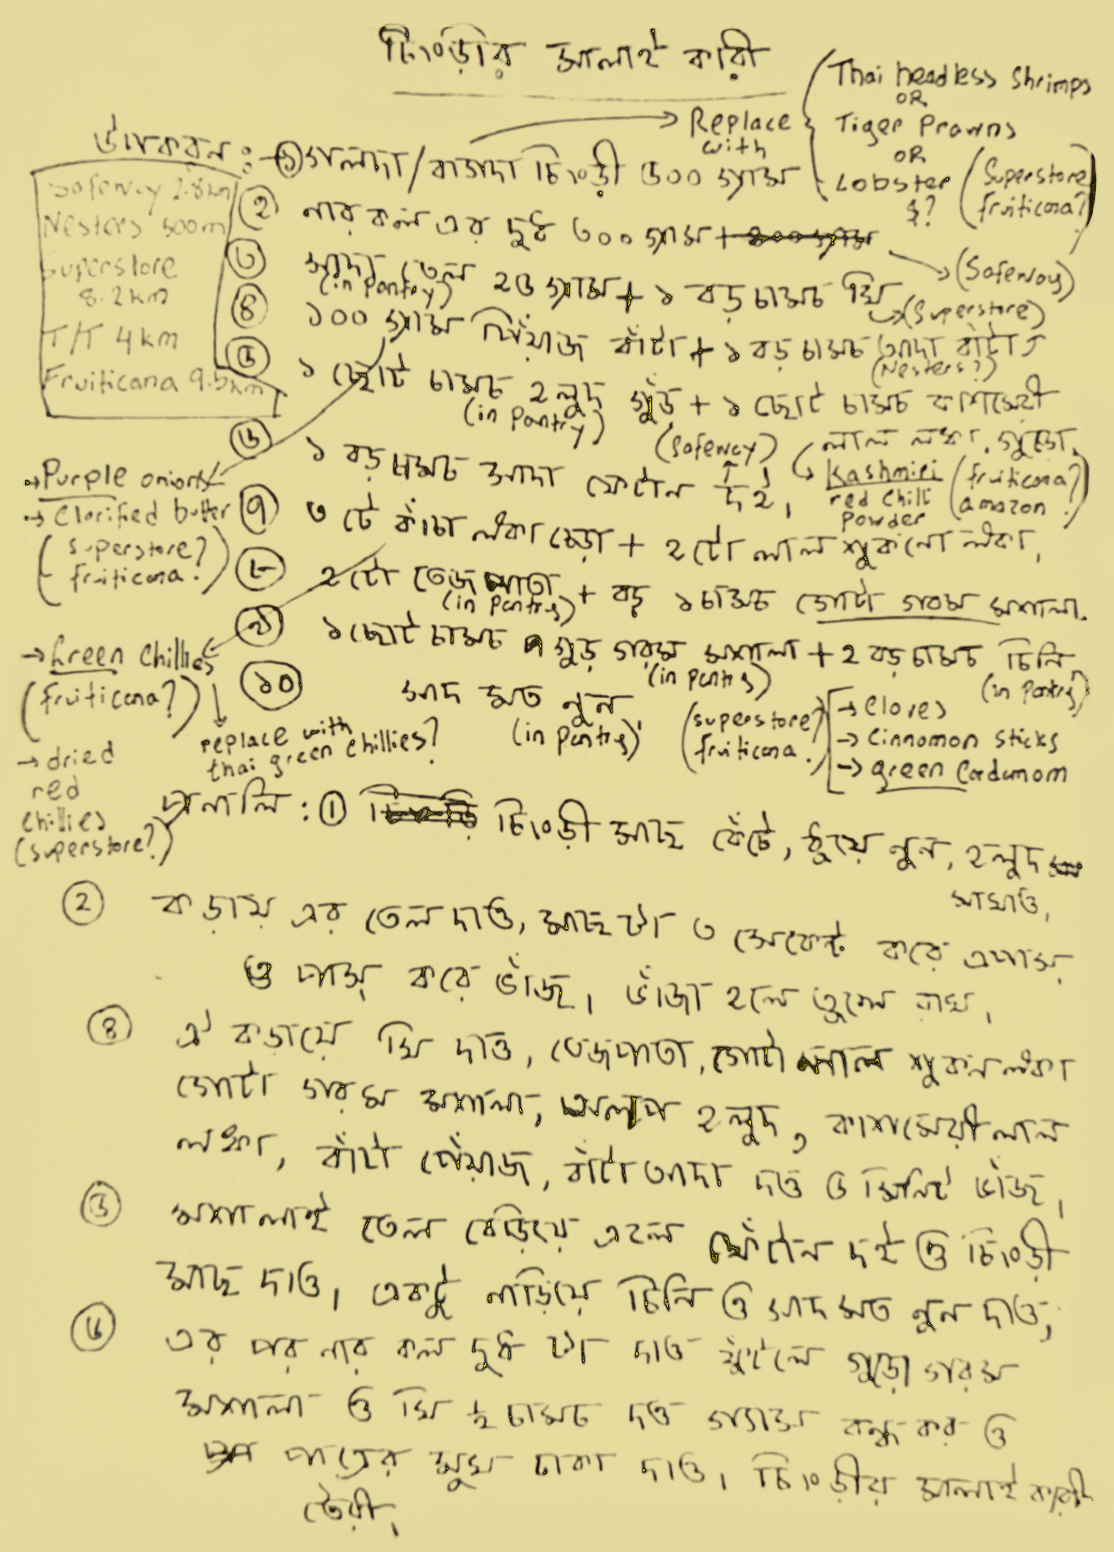 চিংড়ির মালাই কারী
Replace with
Thai headless shrimps
OR
Tiger Prawns
OR
Lobster
$?
(Superstore
fruiticana?)
উপকরন :→
① গলদা/বাগদা চিংড়ী ৫০০ গ্যাম
Safeway 2.8km
Nesters 500m
Superstore
8.2km
T/T 4km
Fruiticana 9.5km
② নারকল এর দুধ ৩০০ গ্যাম
(Safeway)
③ সাদা তেল ২৫ গ্যাম + ১ বড় চামচ ঘি
(in pantry)
(Superstore)
④ ১০০ গ্যাম পিঁয়াজ বাঁটা + ১ বড় চামচ আদা বাঁটা
(Nesters?)
⑤ ১ ছোট চামচ হলুদ গুঁড় + ১ ছোট চামচ কাশমেরী
(in pantry)
লাল লঙ্কা গুড়ো,
(Safeway)
Kashmiri
red chili
powder
(fruiticana?
amazon)
⑥ ১ বড় চামচ সাদা ফেটান দই,
→ Purple onions
→ Clarified butter
(superstore?
fruiticana?)
⑦ ৩ টে কাঁচা লঙ্কা চেড়া + ২টো লাল শুকনো লঙ্কা,
⑧ ২টো তেজ পাতা + বড় ১ চামচ গোটা গরম মশলা.
(in pantry)
⑨ ১ ছোট চামচ গুড় গরম মশালা + ২ বড় চামচ চিনি
(in pantry)
(in pantry)
→ Green chillies
(fruiticana?)
⑩ সাদ মত নুন
(in pantry)
replace with
thai green chillies?
(superstore?
fruiticana?)
→ Cloves
→ Cinnomon sticks
→ green Cardamom
→ dried
red
chillies
(superstore?)
প্রনালি : ① চিংড়ী মাছ বেঁটে, ধুয়ে নুন, হলুদ
মাখাও,
② কড়ায় এর তেল দাও, মাছ টা ৩ সেকেন্ট করে এপাস
ও পাস করে ভাঁজ, ভাঁজা হলে তুলে রাখ,
④ ঐ কড়ায়ে ঘি দাও, তেজপাতা, গোটা লাল শুকন লঙ্কা
গোটা গরম মশালা, অলপ হলুদ, কাশমেরী লাল
লঙ্কা, বাঁটা পেঁয়াজ, বাঁটা আদা দাও ৫ মিনিট ভাঁজ,
⑤ মশালাই তেল বেড়িয়ে এলে ফেঁটান দই ও চিংড়ী
মাছ দাও, একটু নাড়িয়ে চিনি ও সাদ মত নুন দাও,
⑥ এর পর নার কল দুধ টা দাও ফুঁটলে গুড়ো গরম
মশালা ও ঘি ½ চামচ দাও গ্যাস বন্ধ কর ও
পাত্রের মুখ ঢাকা দাও, চিংড়ীর মালাই কারী
তৈরী,